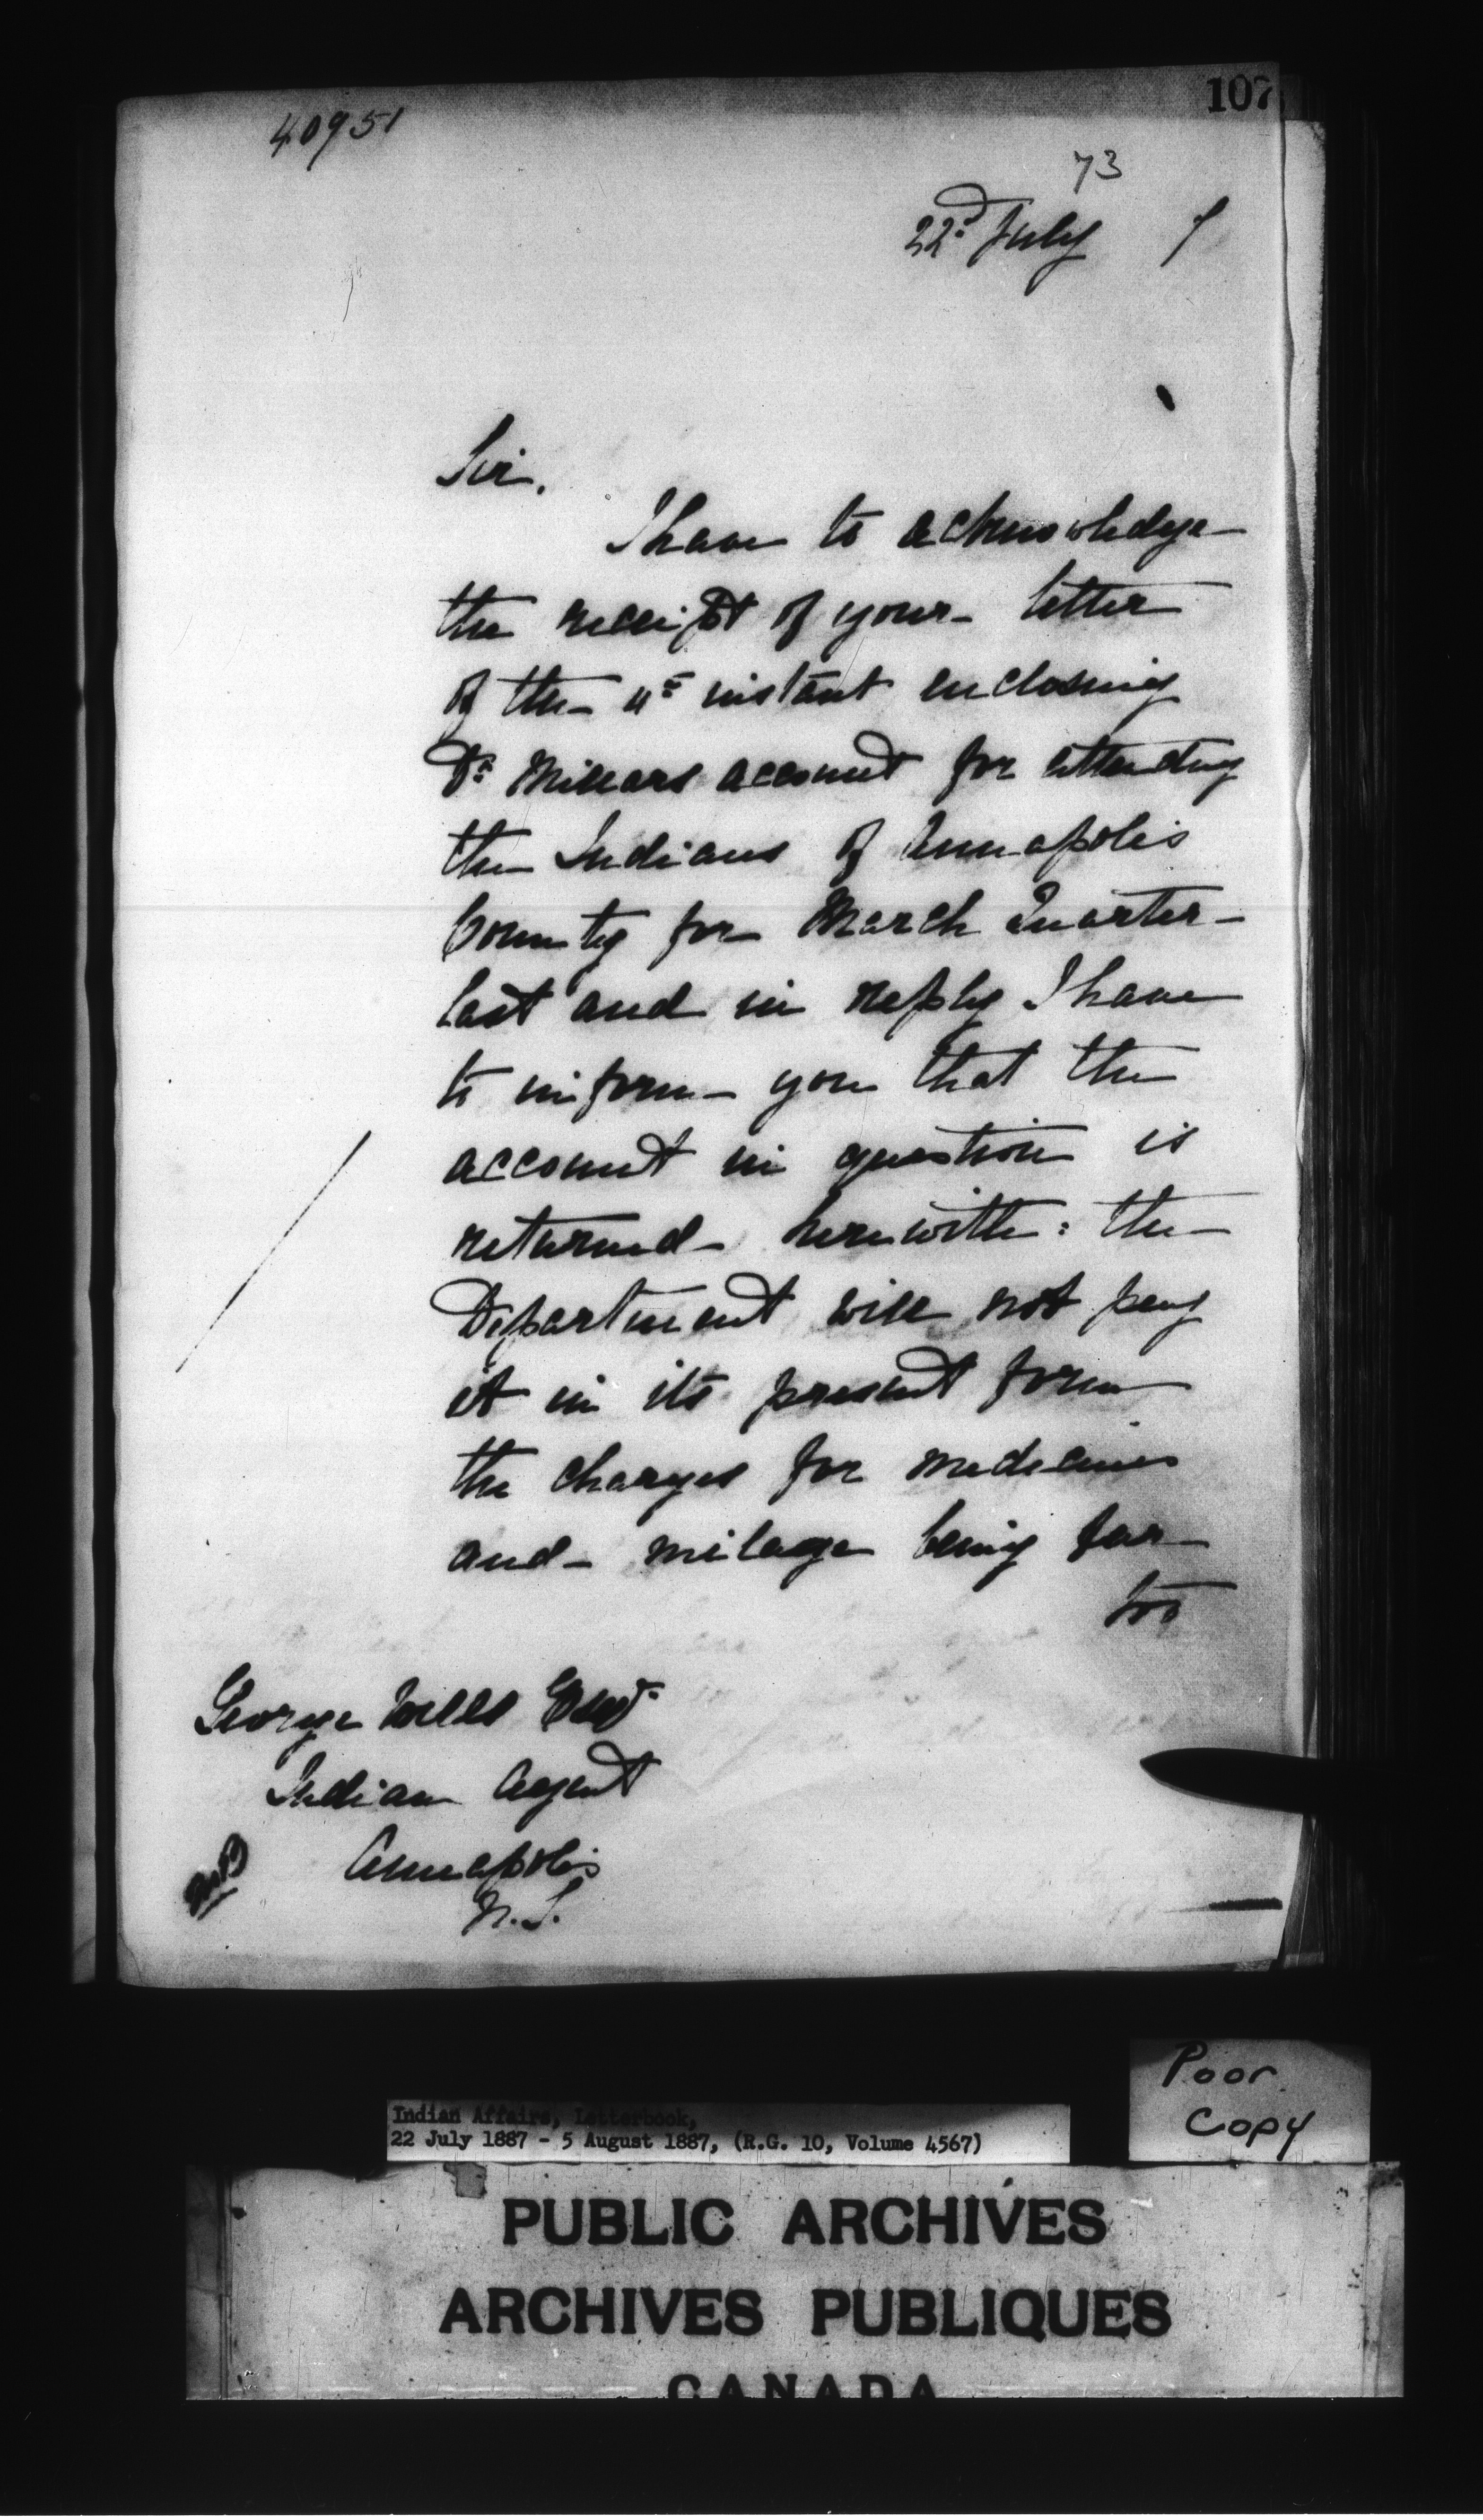 107
40951
73
22nd July 7
Sir,
I have to acknowledge
the receipt of your letter
of the 4th instant enclosing
Dr Millars account for attending
the Indians of Annapolis
County for March Quarter
last and in reply I have
to inform you that the
account in question is
returned herewith: the
Department will not pay
it in its present form
the charges for medicines
and milage being far
too
George Wells Esqr
Indian Agent
Annapolis
N.S.
Poor
Copy
Indian Affairs, Letterbook,
22 July 1887 - 5 August 1887, (R.G. 10, Volume 4567)
PUBLIC ARCHIVES
ARCHIVES PUBLIQUES
CANADA